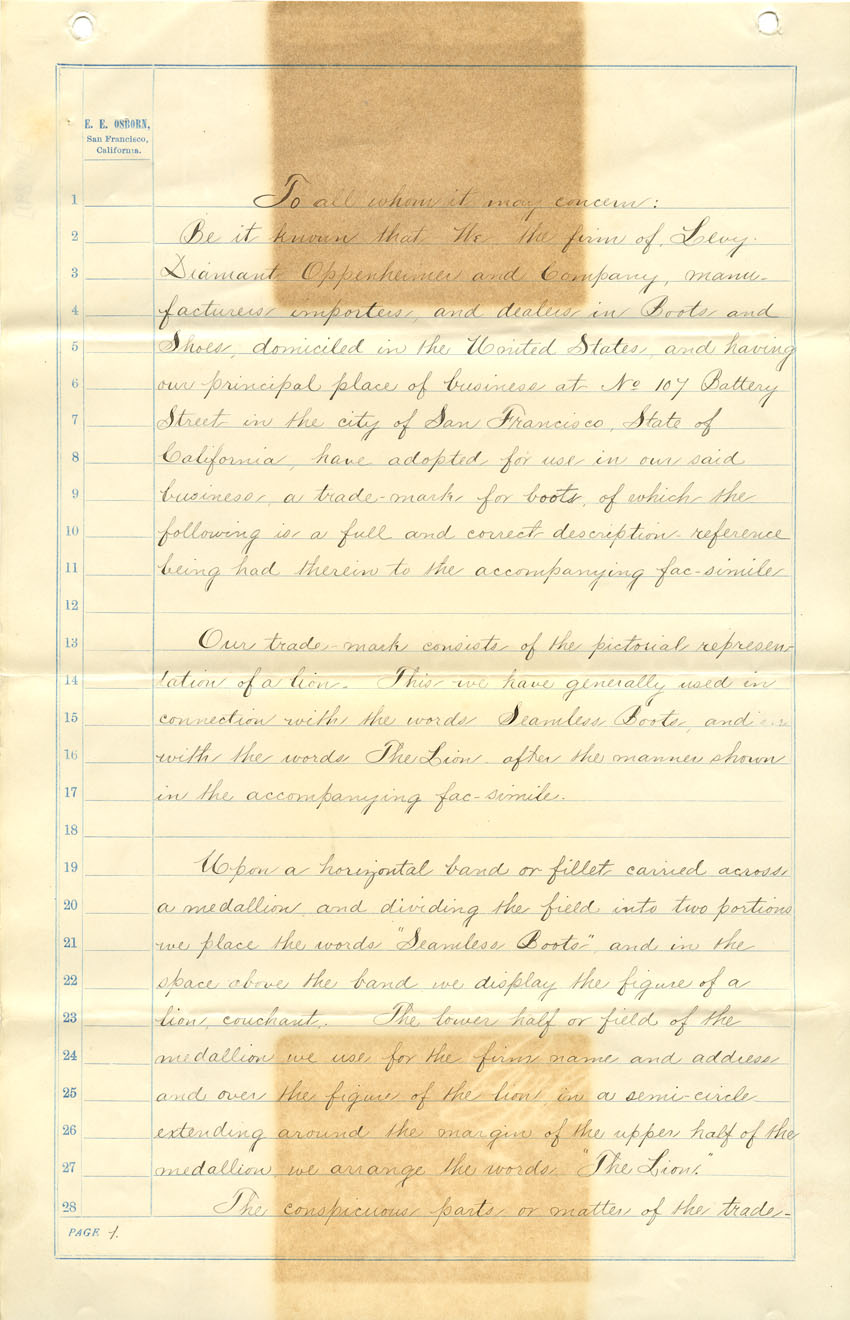 E. E. OSBORN,
San Francisco,
California.
1 To all whom it may concern:
2 Be it known that We, the firm of, Levy
3 Diamant Oppenheimer and Company, manu-
4 facturers importers, and dealers in Boots and
5 Shoes, domiciled in the United States, and having
6 our principal place of business at No 107 Battery
7 Street in the city of San Francisco, State of
8 California, have adopted for use in our said
9 business, a trade-mark for boots, of which the
10 following is a full and correct description reference
11 being had therein to the accompanying fac-simile
12
13 Our trade-mark consists of the pictorial represen-
14 tation of a lion. This we have generally used in
15 connection with the words Seamless Boots, and
16 with the words The Lion after the manner shown
17 in the accompanying fac-simile.
18
19 Upon a horizontal band or fillet carried across
20 a medallion, and dividing the field into two portions
21 we place the words "Seamless Boots", and in the
22 space above the band we display the figure of a
23 lion, couchant. The lower half or field of the
24 medallion we use for the firm name and address
25 and over the figure of the lion, in a semi-circle
26 extending around the margin of the upper half of the
27 medallion, we arrange the words, "The Lion."
28 The conspicuous parts or matter of the trade-
PAGE 1.